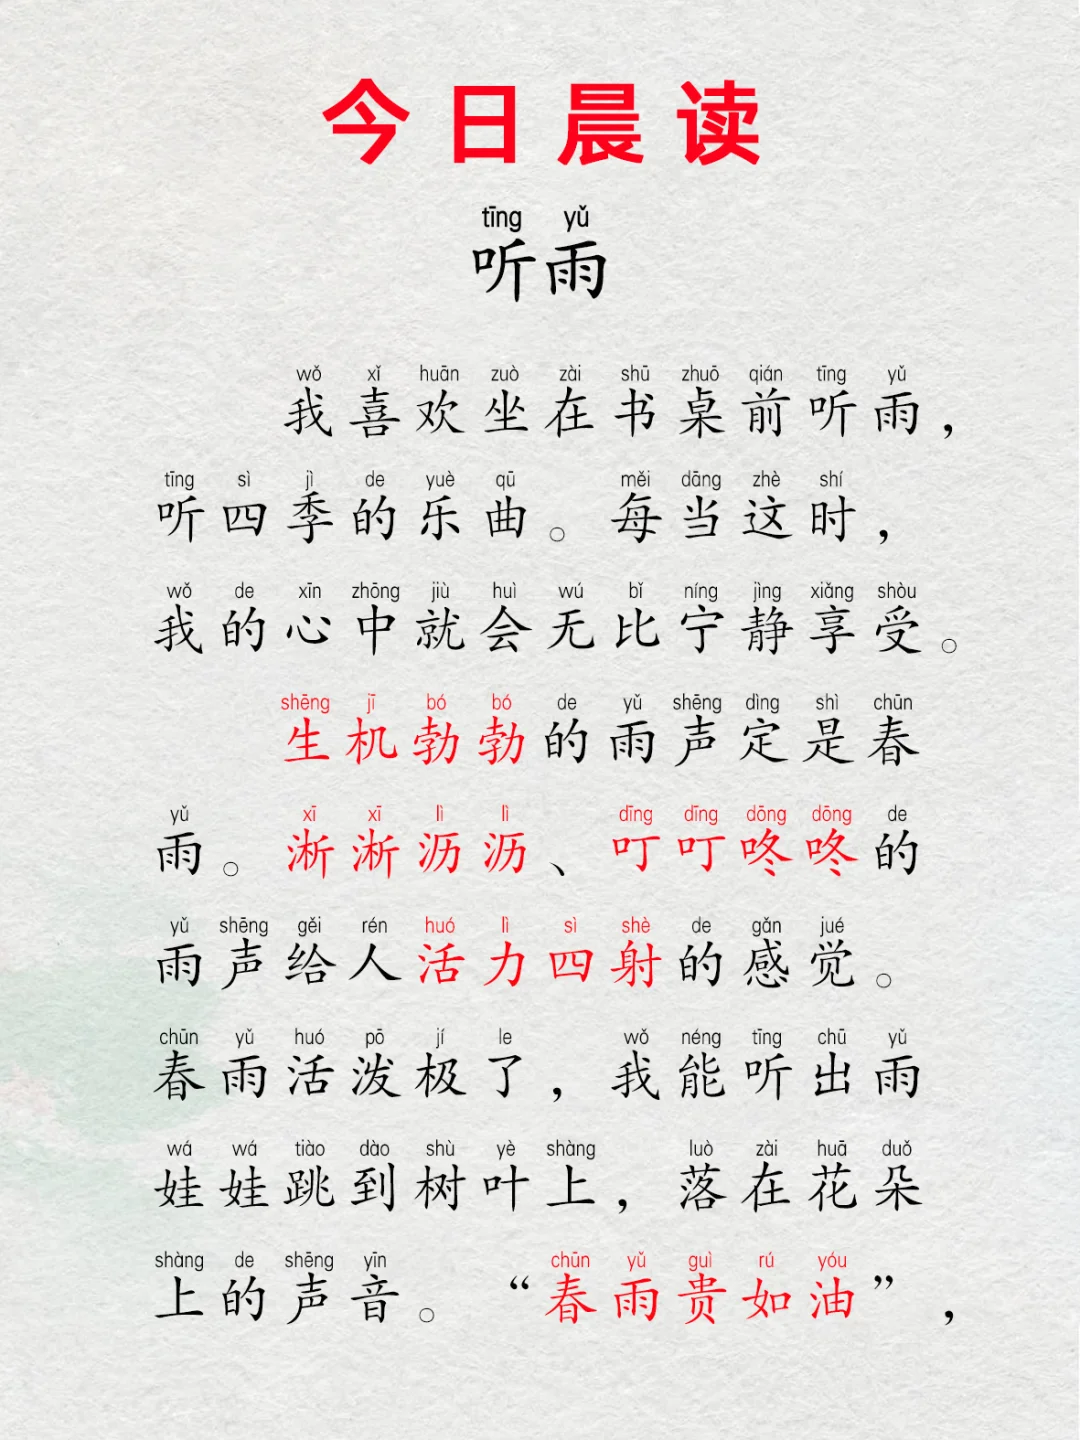 今日晨读
tīng yǔ
听雨
wǒ xǐ huān zuò zài shū zhuō qián tīng yǔ
我喜欢坐在书桌前听雨，
tīng sì jì de yuè qū měi dāng zhè shí
听四季的乐曲。每当这时，
wǒ de xīn zhōng jiù huì wú bǐ níng jìng xiǎng shòu
我的心中就会无比宁静享受。
shēng jī bó bó de yǔ shēng dìng shì chūn
生机勃勃的雨声定是春
yǔ xī xī lì lì dīng dīng dōng dōng de
雨。淅淅沥沥、叮叮咚咚的
yǔ shēng gěi rén huó lì sì shè de gǎn jué
雨声给人活力四射的感觉。
chūn yǔ huó pō jí le wǒ néng tīng chū yǔ
春雨活泼极了，我能听出雨
wá wá tiào dào shù yè shàng luò zài huā duǒ
娃娃跳到树叶上，落在花朵
shàng de shēng yīn chūn yǔ guì rú yóu
上的声音。“春雨贵如油”，